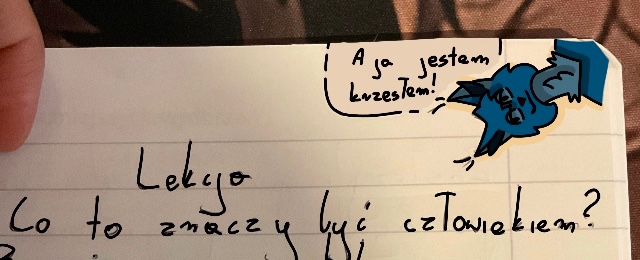 A ja jestem
krzesłem!
Lekcja
Co to znaczy być człowiekiem?